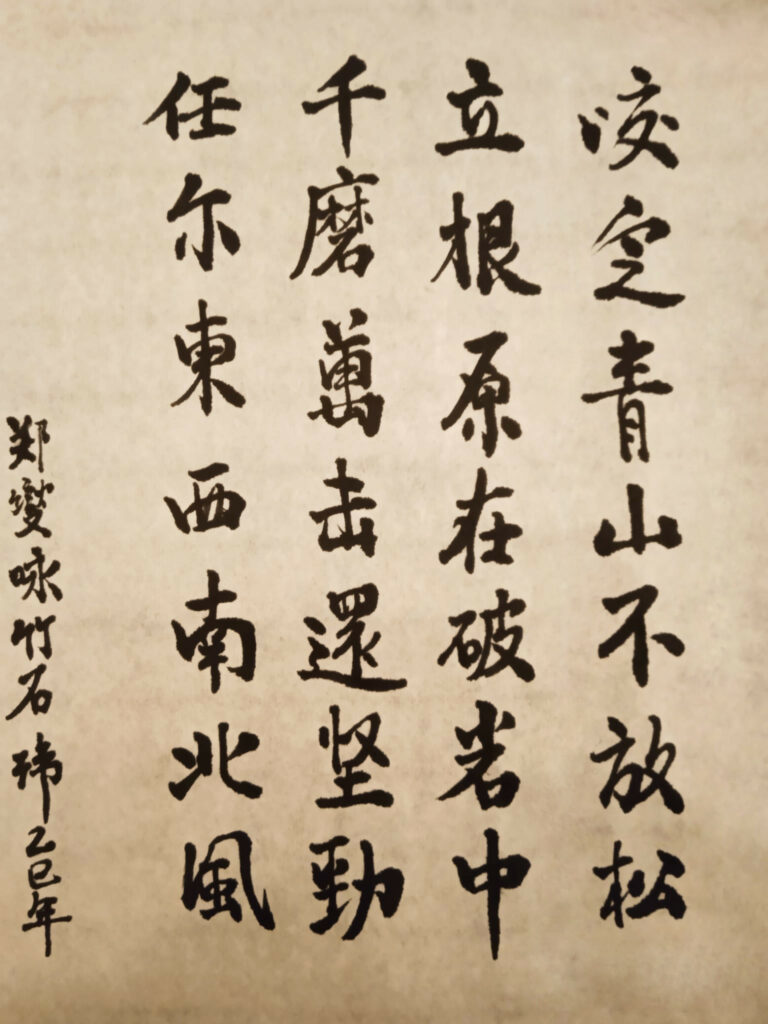 咬定青山不放松
立根原在破岩中
千磨萬击還坚勁
任尔東西南北風
郑燮咏竹石 瑋 乙巳年